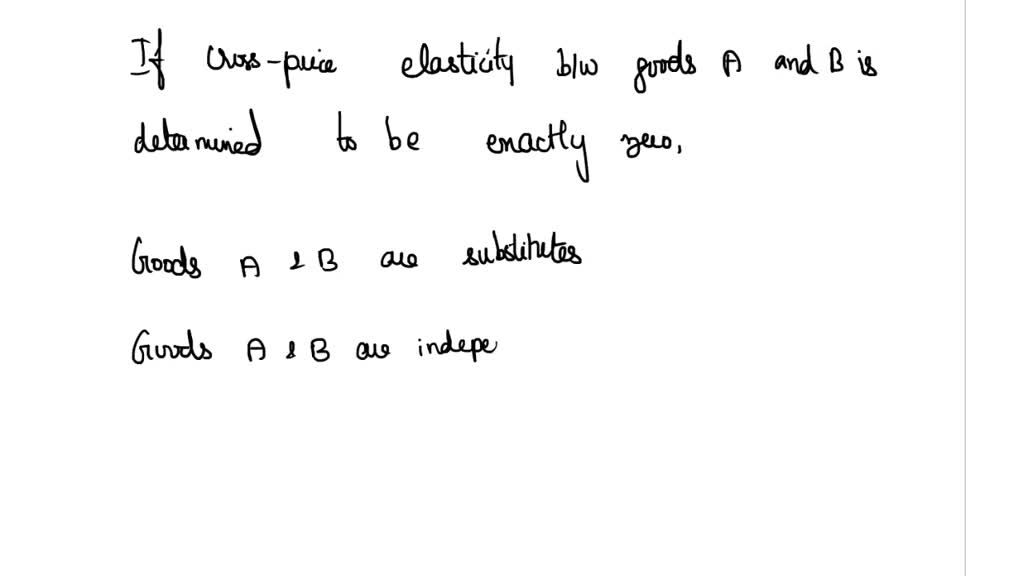 If cross-price elasticity b/w goods A and B is
determined to be exactly zero,
Goods A & B are substitutes
Goods A & B are indepe